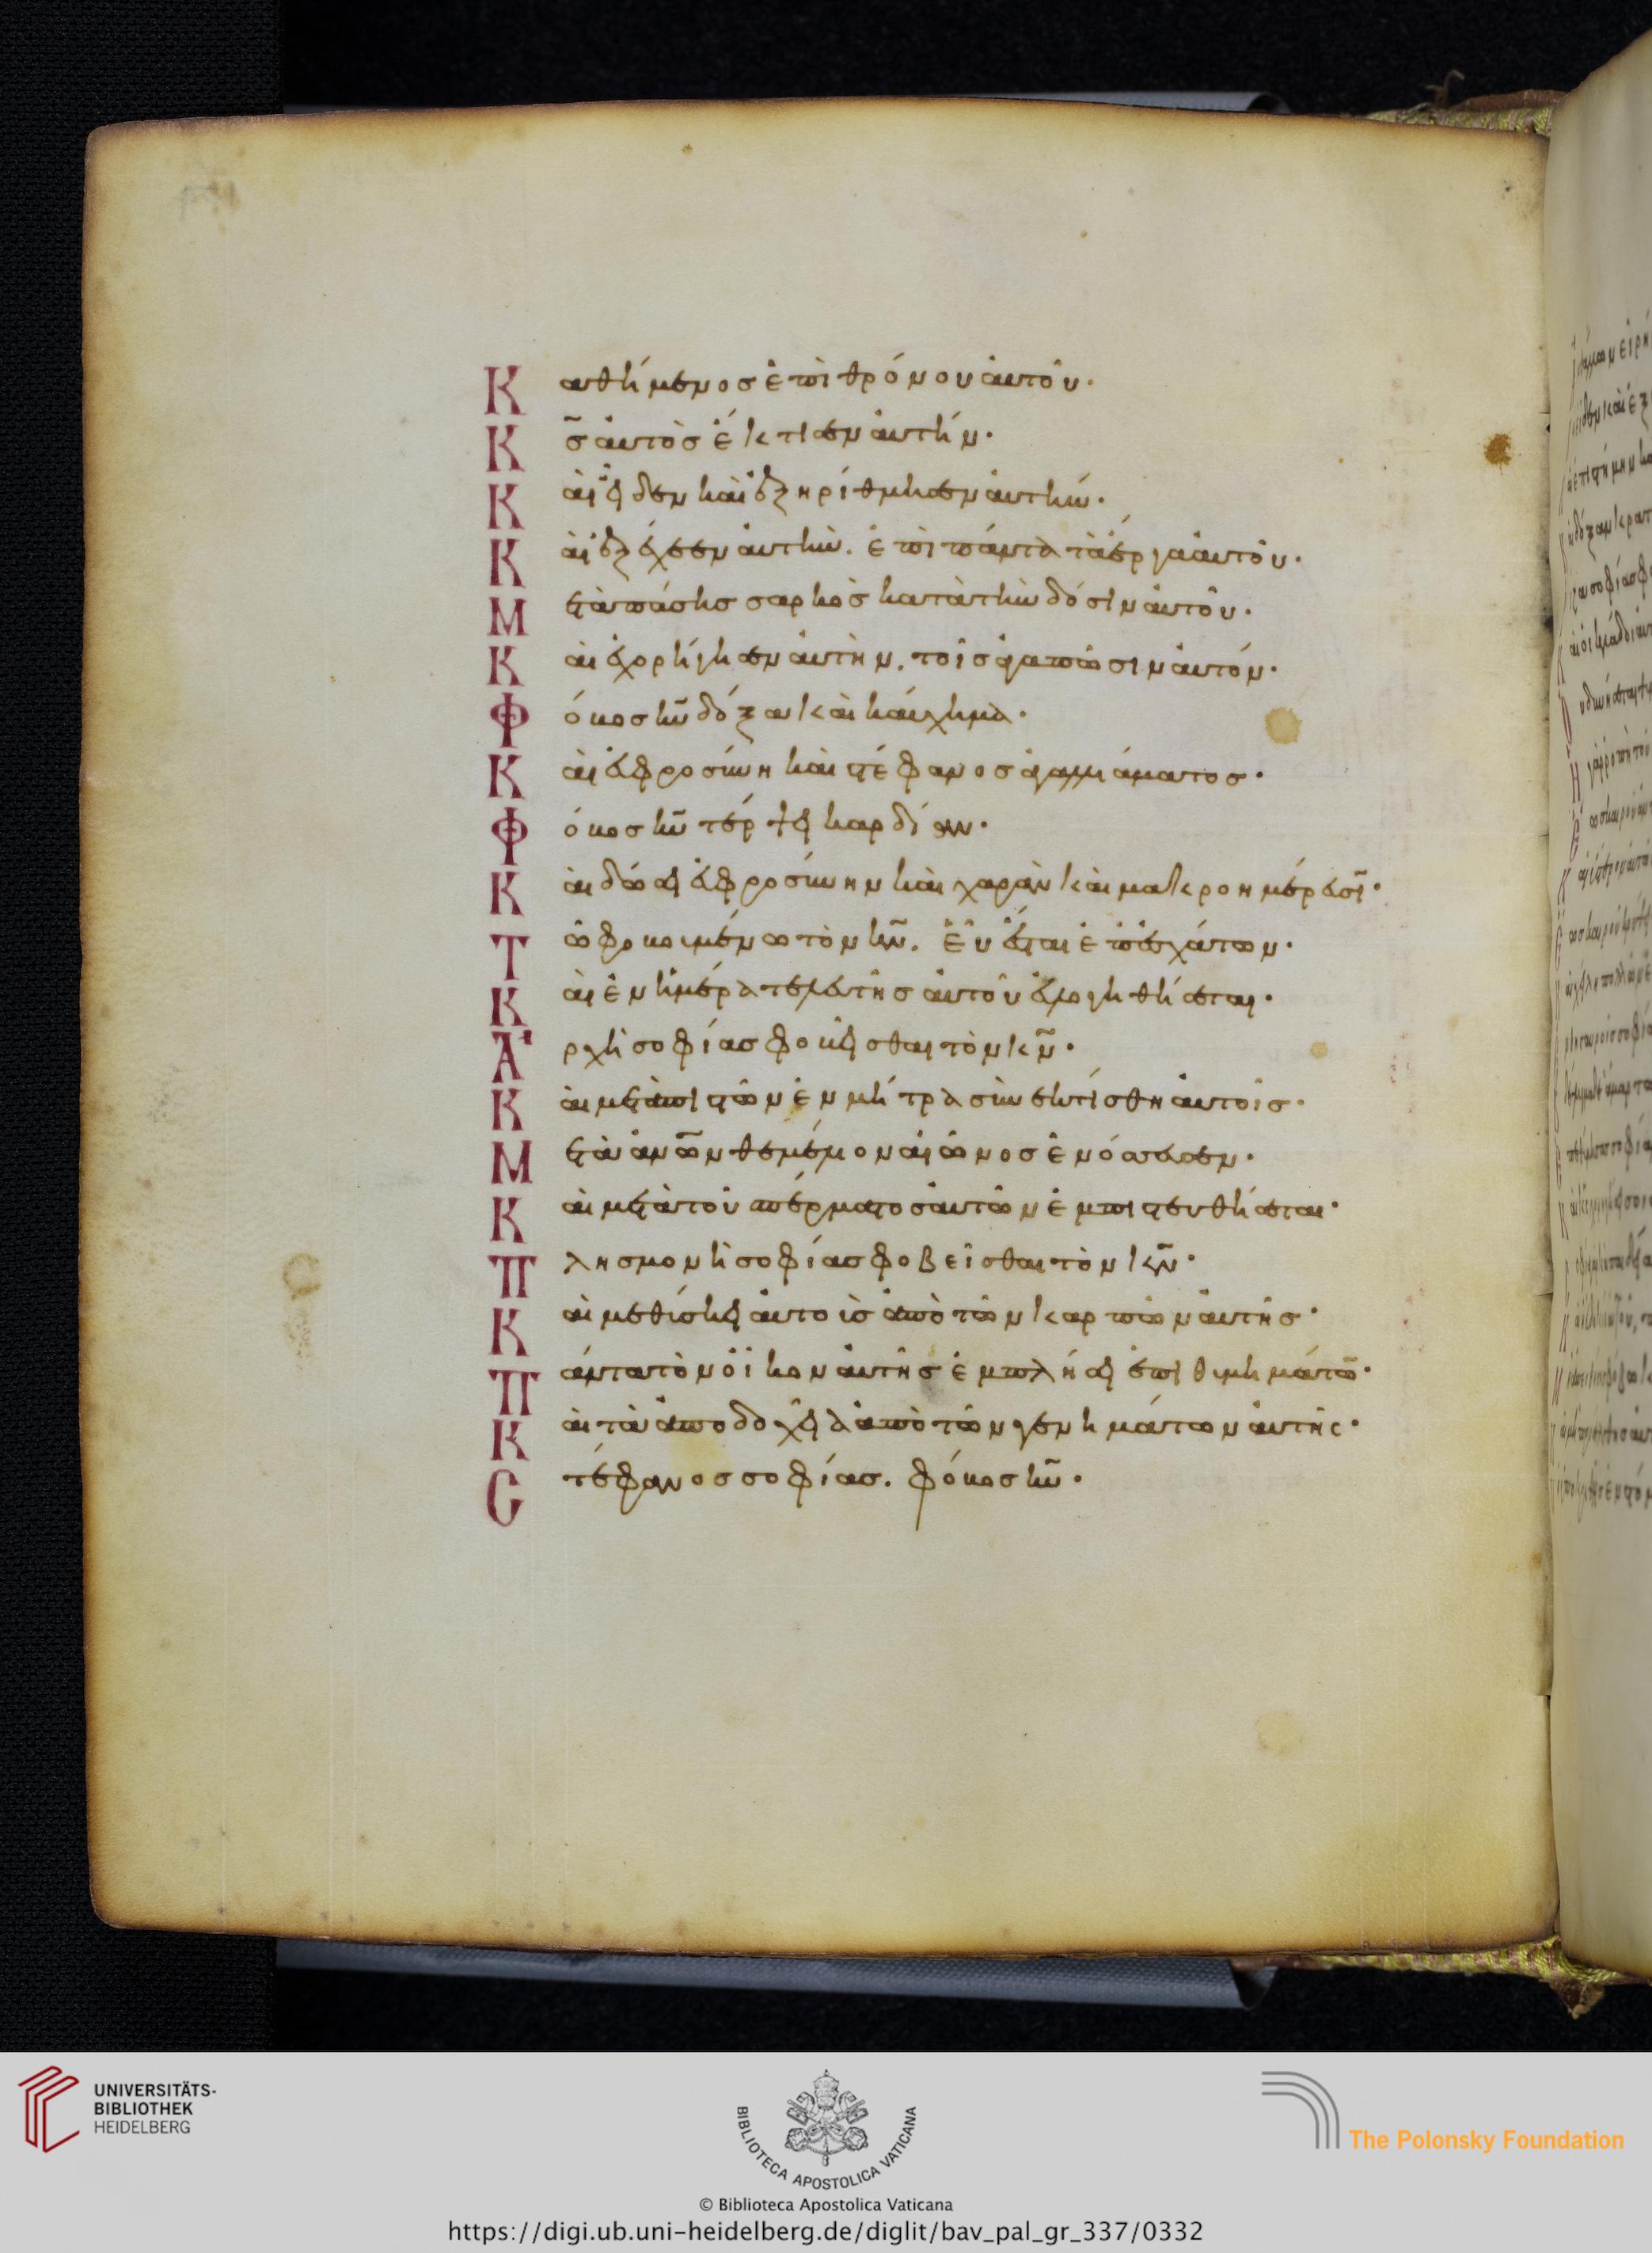 Καθήμενος ἐπὶ θρόνου αὐτοῦ·
Κ̅ς̅ αὐτὸς ἔκτισεν αὐτήν·
Καὶ εἶδεν καὶ ἐξηρίθμησεν αὐτὴν·
Καὶ ἐξέχεεν αὐτὴν. ἐπὶ πάντα τὰ ἔργα αὐτοῦ·
Μετὰ πάσης σαρκὸς κατὰ τὴν δόσιν αὐτοῦ·
Καὶ ἐχορήγησεν αὐτὴν. τοῖς ἀγαπῶσιν αὐτόν·
Φόβος κ̅υ̅ δόξα καὶ καύχημα·
Καὶ εὐφροσύνη καὶ στέφανος ἀγαλλιάματος·
Φόβος κ̅υ̅ τέρψει καρδίαν·
Καὶ δώσει εὐφροσύνην καὶ χαρὰν καὶ μακροημέρευσῑ·
Τῶ φοβουμένω τὸν κ̅ν̅. εὖ ἔσται ἐπ' ἐσχάτων·
Καὶ ἐν ἡμέρα τελευτῆς αὐτοῦ εὐλογηθήσεται·
Ἀρχὴ σοφίας φοβεῖσθαι τὸν κ̅ν̅·
Καὶ μετὰ πιστῶν ἐν μήτρα συνεκτίσθη αὐτοῖς·
Μετὰ ἀν̅ω̅ν θεμέλιον αἰῶνος ἐνόσσευσεν·
Καὶ μετὰ τοῦ σπέρματος αὐτῶν ἐμπιστευθήσεται·
Πλησμονὴ σοφίας φοβεῖσθαι τὸν κ̅ν̅·
Καὶ μεθύσκει αὐτοὺς ἀπὸ τῶν καρπῶν αὐτῆς·
Πάντα τὸν οἶκον αὐτῆς ἐμπλήσει ἐπιθυμημάτω̅·
Καὶ τὰ ἀποδοχεῖα ἀπὸ τῶν γενημάτων αὐτῆς·
Στέφανος σοφίας. φόβος κ̅υ̅·
UNIVERSITÄTS-
BIBLIOTHEK
HEIDELBERG
BIBLIOTECA APOSTOLICA VATICANA
The Polonsky Foundation
© Biblioteca Apostolica Vaticana
https://digi.ub.uni-heidelberg.de/diglit/bav_pal_gr_337/0332